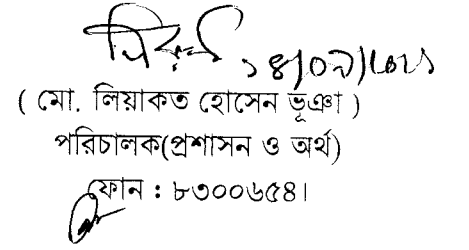 ( মো. লিয়াকত হোসেন ভূঞা )
পরিচালক(প্রশাসন ও অর্থ)
ফোন : ৮৩০০৬৫৪।